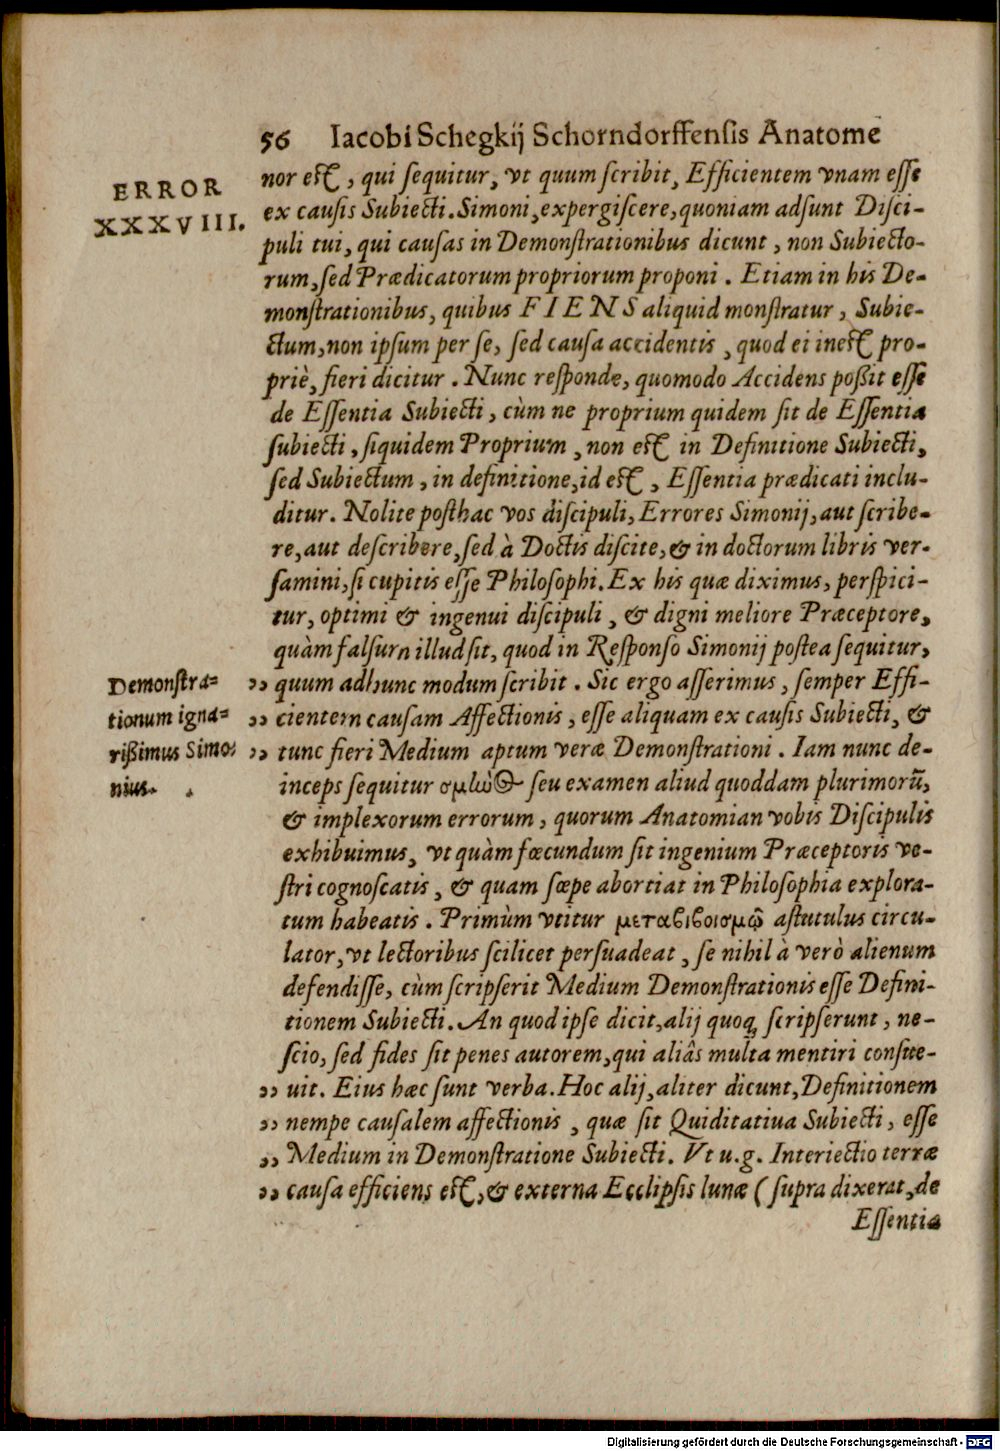 56 Iacobi Schegkij Schorndorffensis Anatome
ERROR
XXXVIII.
nor est, qui sequitur, vt quum scribit, Efficientem vnam esse
ex causis Subiecti. Simoni, expergiscere, quoniam adsunt Disci-
puli tui, qui causas in Demonstrationibus dicunt, non Subiecto-
rum, sed Prædicatorum propriorum proponi. Etiam in his De-
monstrationibus, quibus FIENS aliquid monstratur, Subie-
ctum, non ipsum per se, sed causa accidentis, quod ei inest pro-
priè, fieri dicitur. Nunc responde, quomodo Accidens poßit esse
de Essentia Subiecti, cùm ne proprium quidem sit de Essentia
subiecti, siquidem Proprium, non est in Definitione Subiecti,
sed Subiectum, in definitione, id est, Essentia prædicati inclu-
ditur. Nolite posthac vos discipuli, Errores Simonij, aut scribe-
re, aut describere, sed à Doctis discite, & in doctorum libris ver-
samini, si cupitis esse Philosophi. Ex his quæ diximus, perspici-
tur, optimi & ingenui discipuli, & digni meliore Præceptore,
quàm falsum illud sit, quod in Responso Simonij postea sequitur,
Demonstra=
tionum igna=
rißimus Simo=
nius.
„ quum adhunc modum scribit. Sic ergo asserimus, semper Effi-
„ cientem causam Affectionis, esse aliquam ex causis Subiecti, &
„ tunc fieri Medium aptum veræ Demonstrationi. Iam nunc de-
inceps sequitur σμῶος seu examen aliud quoddam plurimorũ,
& implexorum errorum, quorum Anatomian vobis Discipulis
exhibuimus, vt quàm fœcundum sit ingenium Præceptoris ve-
stri cognoscatis, & quam sæpe abortiat in Philosophia explora-
tum habeatis. Primùm vtitur μεταβιβοισμῷ astutulus circu-
lator, vt lectoribus scilicet persuadeat, se nihil à verò alienum
defendisse, cùm scripserit Medium Demonstrationis esse Defini-
tionem Subiecti. An quod ipse dicit, alij quoq; scripserunt, ne-
scio, sed fides sit penes autorem, qui aliâs multa mentiri consue-
„ uit. Eius hæc sunt verba. Hoc alij, aliter dicunt, Definitionem
„ nempe causalem affectionis, quæ sit Quiditatiua Subiecti, esse
„ Medium in Demonstratione Subiecti. Vt u.g. Interiectio terræ
„ causa efficiens est, & externa Ecclipsis lunæ (supra dixerat, de
Essentia
Digitalisierung gefördert durch die Deutsche Forschungsgemeinschaft - DFG